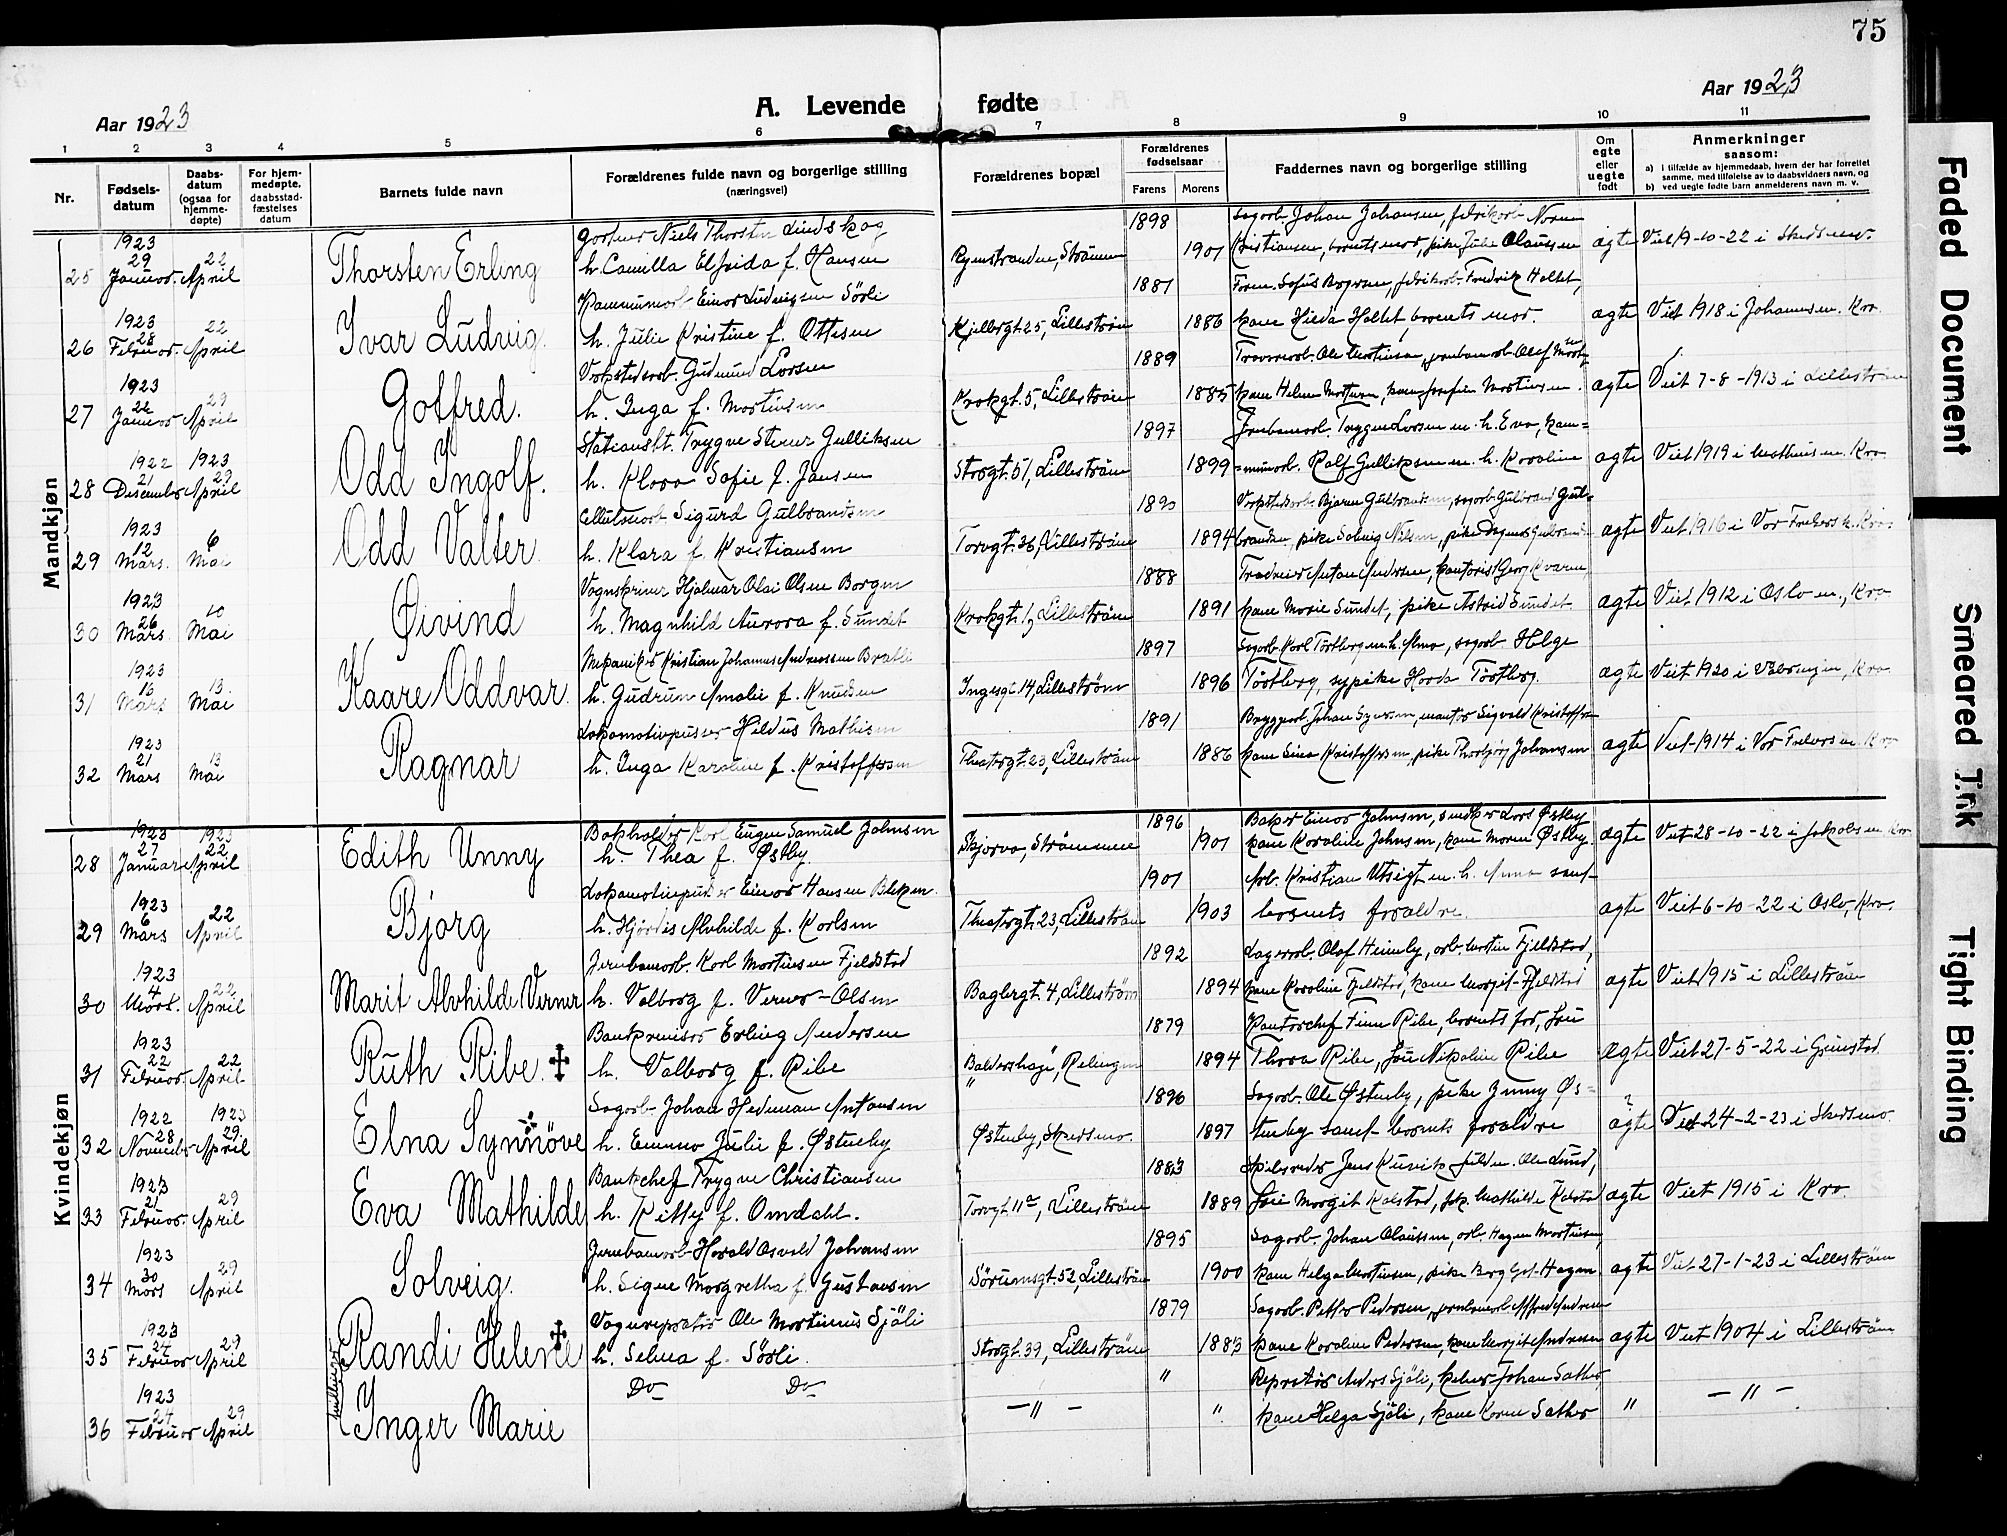 75
Aar 1923
A. Levende fødte
Aar 1923
1 2 3 4 5 6 7 8 9 10 11
Nr.
Fødsels-datum
Daabs-datum (ogsaa for hjemme-døpte)
For hjem-medøpte, daabsstad-fæstelses datum
Barnets fulde navn
Forældrenes fulde navn og borgerlige stilling (næringsvei)
Forældrenes bopæl
Forældrenes fødselsaar
Farens Morens
Faddernes navn og borgerlige stilling
Om egte eller uegte født
Anmerkninger saasom:
a) i tilfælde av hjemmedaab, hvem der har forrettet samme, med tilføielse av to daabsvidners navn, og
b) ved uegte fødte barn anmelderens navn m. v.
Mandkjøn
25 1923 29 Januar. 22 April Thorsten Erling
Gartner Niels Thorsten Lindskog
h. Camilla Elfrida f. Hansen
Rymstranden, Strømmen 1898 1901
Sagarb. Johan Johansen, fabrikarb.
Kristiansen, barnets mor, pike Julie Olaussen
ægte Viet 9-10-22 i Skedsmo.
26 1923 28 Februar. 22 April Ivar Ludvig.
Einar Ludvigsen Sörli
h. Julie Kristine f. Ottesen
Kjellergt 25, Lilleström 1881 1886
Form. Sofus fabrikarb. Fredrik Hallet,
kone Hilda Hallet, barnets mor.
ægte Viet 1918 i Johannesm. Kra.
27 1923 22 Januar 29 April Gotfred.
Verkstedarb. Gudmund Larsen
h. Inga f. Martinsen
Krokgt. 5, Lilleström 1889 1885
Ole Martinsen, jernbanearb. Olaf
kone Helene kone Josefine Martinsen.
ægte Viet 7-8-1913 i Lilleström
28 1922 21 December 1923 29 April Odd Ingolf.
Stationsbt. Trygve Sterner Gulliksen
h. Klara Sofie f. Jansen
Storgt. 51, Lilleström 1897 1899
Jernbanearb. Trygve Larsen m. h. Eva, kom=
=munearb. Ralf Gulliksen m. h. Karoline
ægte Viet 1919 i Mathæusm. Kra
29 1923 12 Mars. 6 Mai Odd Valter.
Sigurd Gulbrandsen
h. Klara f. Kristiansen
Torvgt. 36, Lilleström 1890 1894
Bjarne Gulbrandsen, sagarb. Gulbrand Gul=
brandsen, pike Solveig Nilsen, pike Dagmar
ægte Viet 1916 i Vor Frelsers k. Kra
30 1923 26 Mars. 10 Mai Øivind
Vognskriver Hjalmar Olai Olsen Borgen
h. Magnhild Aurora f. Sundet
Krokgt. 13 Lilleström 1888 1891
Anton Andersen, kontorist Georg Kvarme,
kone Marie Sundet, pike Astrid Sundet
ægte Viet 1912 i Oslo m., Kra
31 1923 16 Mars 13 Mai Kaare Oddvar.
Mekaniker Kristian Johannes Andreassen Bratli
h. Gudrun Amalie f. Knudsen
Ingesgt 14, Lilleström 1897 1896
Sagarb. Karl Törtberg m. h. Anna, sagarb. Helge
Törtberg, sypike Harda Törtberg.
ægte Viet 1920 i Kra
32 1923 21 Mars 13 Mai Ragnar
Lokomotivpusser Hildus Mathisen
h. Inga Karoline f. Kristoffersen
Theatergt. 23, Lilleström 1891 1886
Johan montør Sigvald Kristoffersen
kone Kristoffersen, pike Thorbjörg Johansen
ægte Viet 1914 i Vor Frelsers k. Kra
Kvindekjøn
28 1923 27 Januar 1923 22 April Edith Unny
Bokholder Karl Eugen Samuel Johnsen
h. Thea f. Østby
Skjerva, Strømmen 1896 1901
Baker Einar Johnsen, Lars Østby
kone Karoline Johnsen, kone Maren Østby.
ægte Viet 28-10-22 i Jakobs m. Kra
29 1923 6 Mars 22 April Bjørg
Lokomotivpudser Einar Hansen
h. Hjördis Alvhilde f. Karlsen
Theatergt. 23, Lilleström 1901 1903
Arb. Kristian Utsigt m. h. Anna samt
barnets foreldre
ægte Viet 6-10-22 i Oslo, Kra.
30 1923 4 Mars. 22 April Marit Alvhilde Verner
Jernbanearb. Karl Martinsen Fjeldstad
h. Valborg f. Verner-Olsen
Baglergt. 4, Lilleström 1892 1894
Lagerarb. Olaf Heimly, arb. Martin Fjeldstad,
kone Karoline Fjeldstad, kone Margit Fjeldstad
ægte Viet 1915 i Lilleström
31 1923 22 Februar. 22 April Ruth Ribe. ✝
Bankrevisor Erling Andersen
h. Valborg f. Ribe
Baldershage, Rælingen 1879 1894
Kontorchef Finn Ribe, barnets far, fru
Thora Ribe, fru Nikoline Ribe
ægte Viet 27-5-22 i Grimstad
32 1922 28 November 1923 29 April Elna Synnöve
Sagarb. Johan Herman Antonsen
h. Emma Julie f. Østenby
Østenby, Skedsmo. 1896 1897
Sagarb. Ole Østenby, pike Jenny Øs=
tenby samt barnets foreldre
? ægte Viet 24-2-23 i Skedsmo
33 1923 21 Februar. 29 April Eva Mathilde
Bankchef Trygve Christiansen
h. Kitty f. Omdahl.
Torvgt 11a, Lilleström 1883 1889
Jens Ole Lund,
fru Margit Kolstad, frk. Mathilde Kolstad
ægte Viet 1915 i Kra
34 1923 30 Mars 29 April Solveig.
Jernbanearb. Harald Osvald Johansen
h. Signe Margrethe f. Gustavsen
Sörumsgt. 52, Lilleström 1895 1900
Sagarb. Johan Olaussen, arb. Hagen Martinsen,
kone Helga Martinsen, pike Borghild Hagen
ægte Viet 27-1-23 i Lilleström
35 1923 24 Februar 29 April Randi Helene ✝
Vognreparatör Ole Martinius Sjöli
h. Selma f. Sörli.
Storgt. 39, Lilleström 1879 1883
Sagarb. Petter Pedersen, jernbanearb. Alfred Andresen
kone Karoline Pedersen, kone Margit Andresen
ægte Viet 1904 i Lilleström
tvillinger
36 1923 24 Februar 29 April Inger Marie
Do Do
—"— " "
Reparatör Anders Sjöli, kelner Johan Sæther,
kone Helga Sjöli, kone Karen Sæther
" —"—
Faded Document
Smeared Ink
Tight Binding